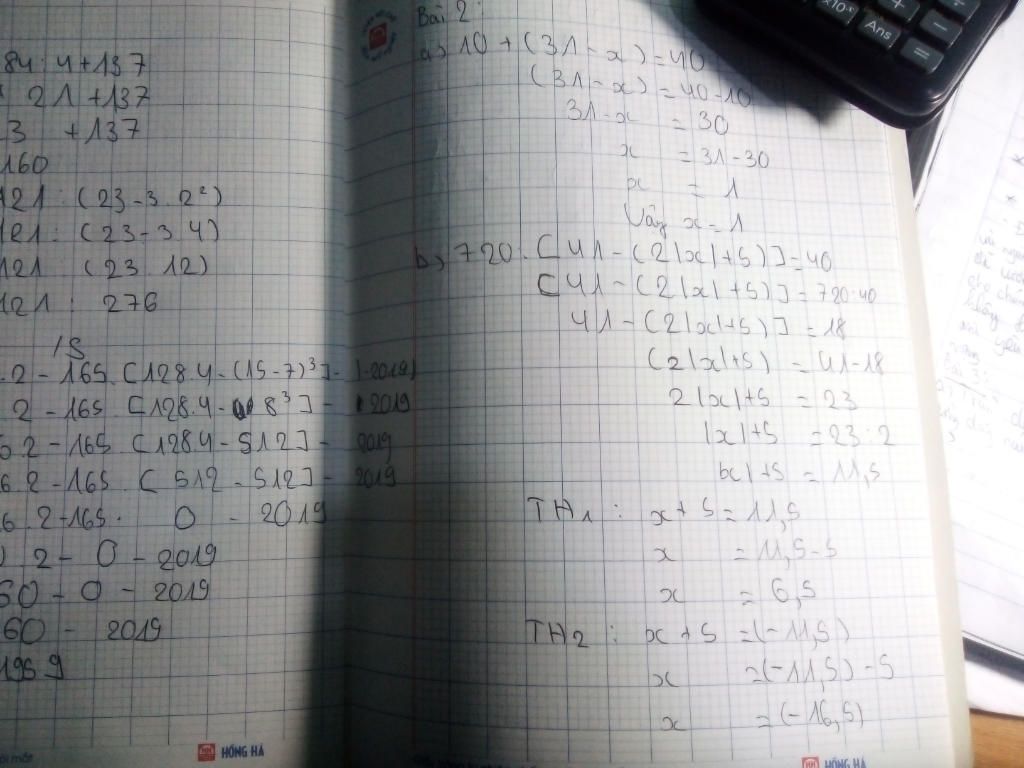 84: 4+137
21 +137
3 +137
160
121: (23-3.2²)
121: (23-3.4)
121 (23 12)
121: 276
15
.2-165.[128.4-(15-7)³]-(-2019)
2-165 [128.4-8³]- 2019
6.2-165 [128.4-512]- 2019
6 2-165 [512-512]- 2019
6 2-165. 0 - 2019
2-0-2019
60-0-2019
60- 2019
1969
HỒNG HÀ
Bài 2:
a) 10+(31-x)=40
(31-x)=40-10
31-x =30
x =31-30
x =1
Vậy x=1
b) 720:[41-(2|x|+5)]=40
[41-(2|x|+5)]=720:40
41-(2|x|+5)]=18
(2|x|+5) =41-18
2|x|+5 =23
|x|+5 =23:2
|x|+5 =11,5
TH1: x+5=11,5
x =11,5-5
x =6,5
TH2: x+5=(-11,5)
x =(-11,5)-5
x =(-16,5)
HỒNG HÀ
x10ˣ
Ans
+
-
=